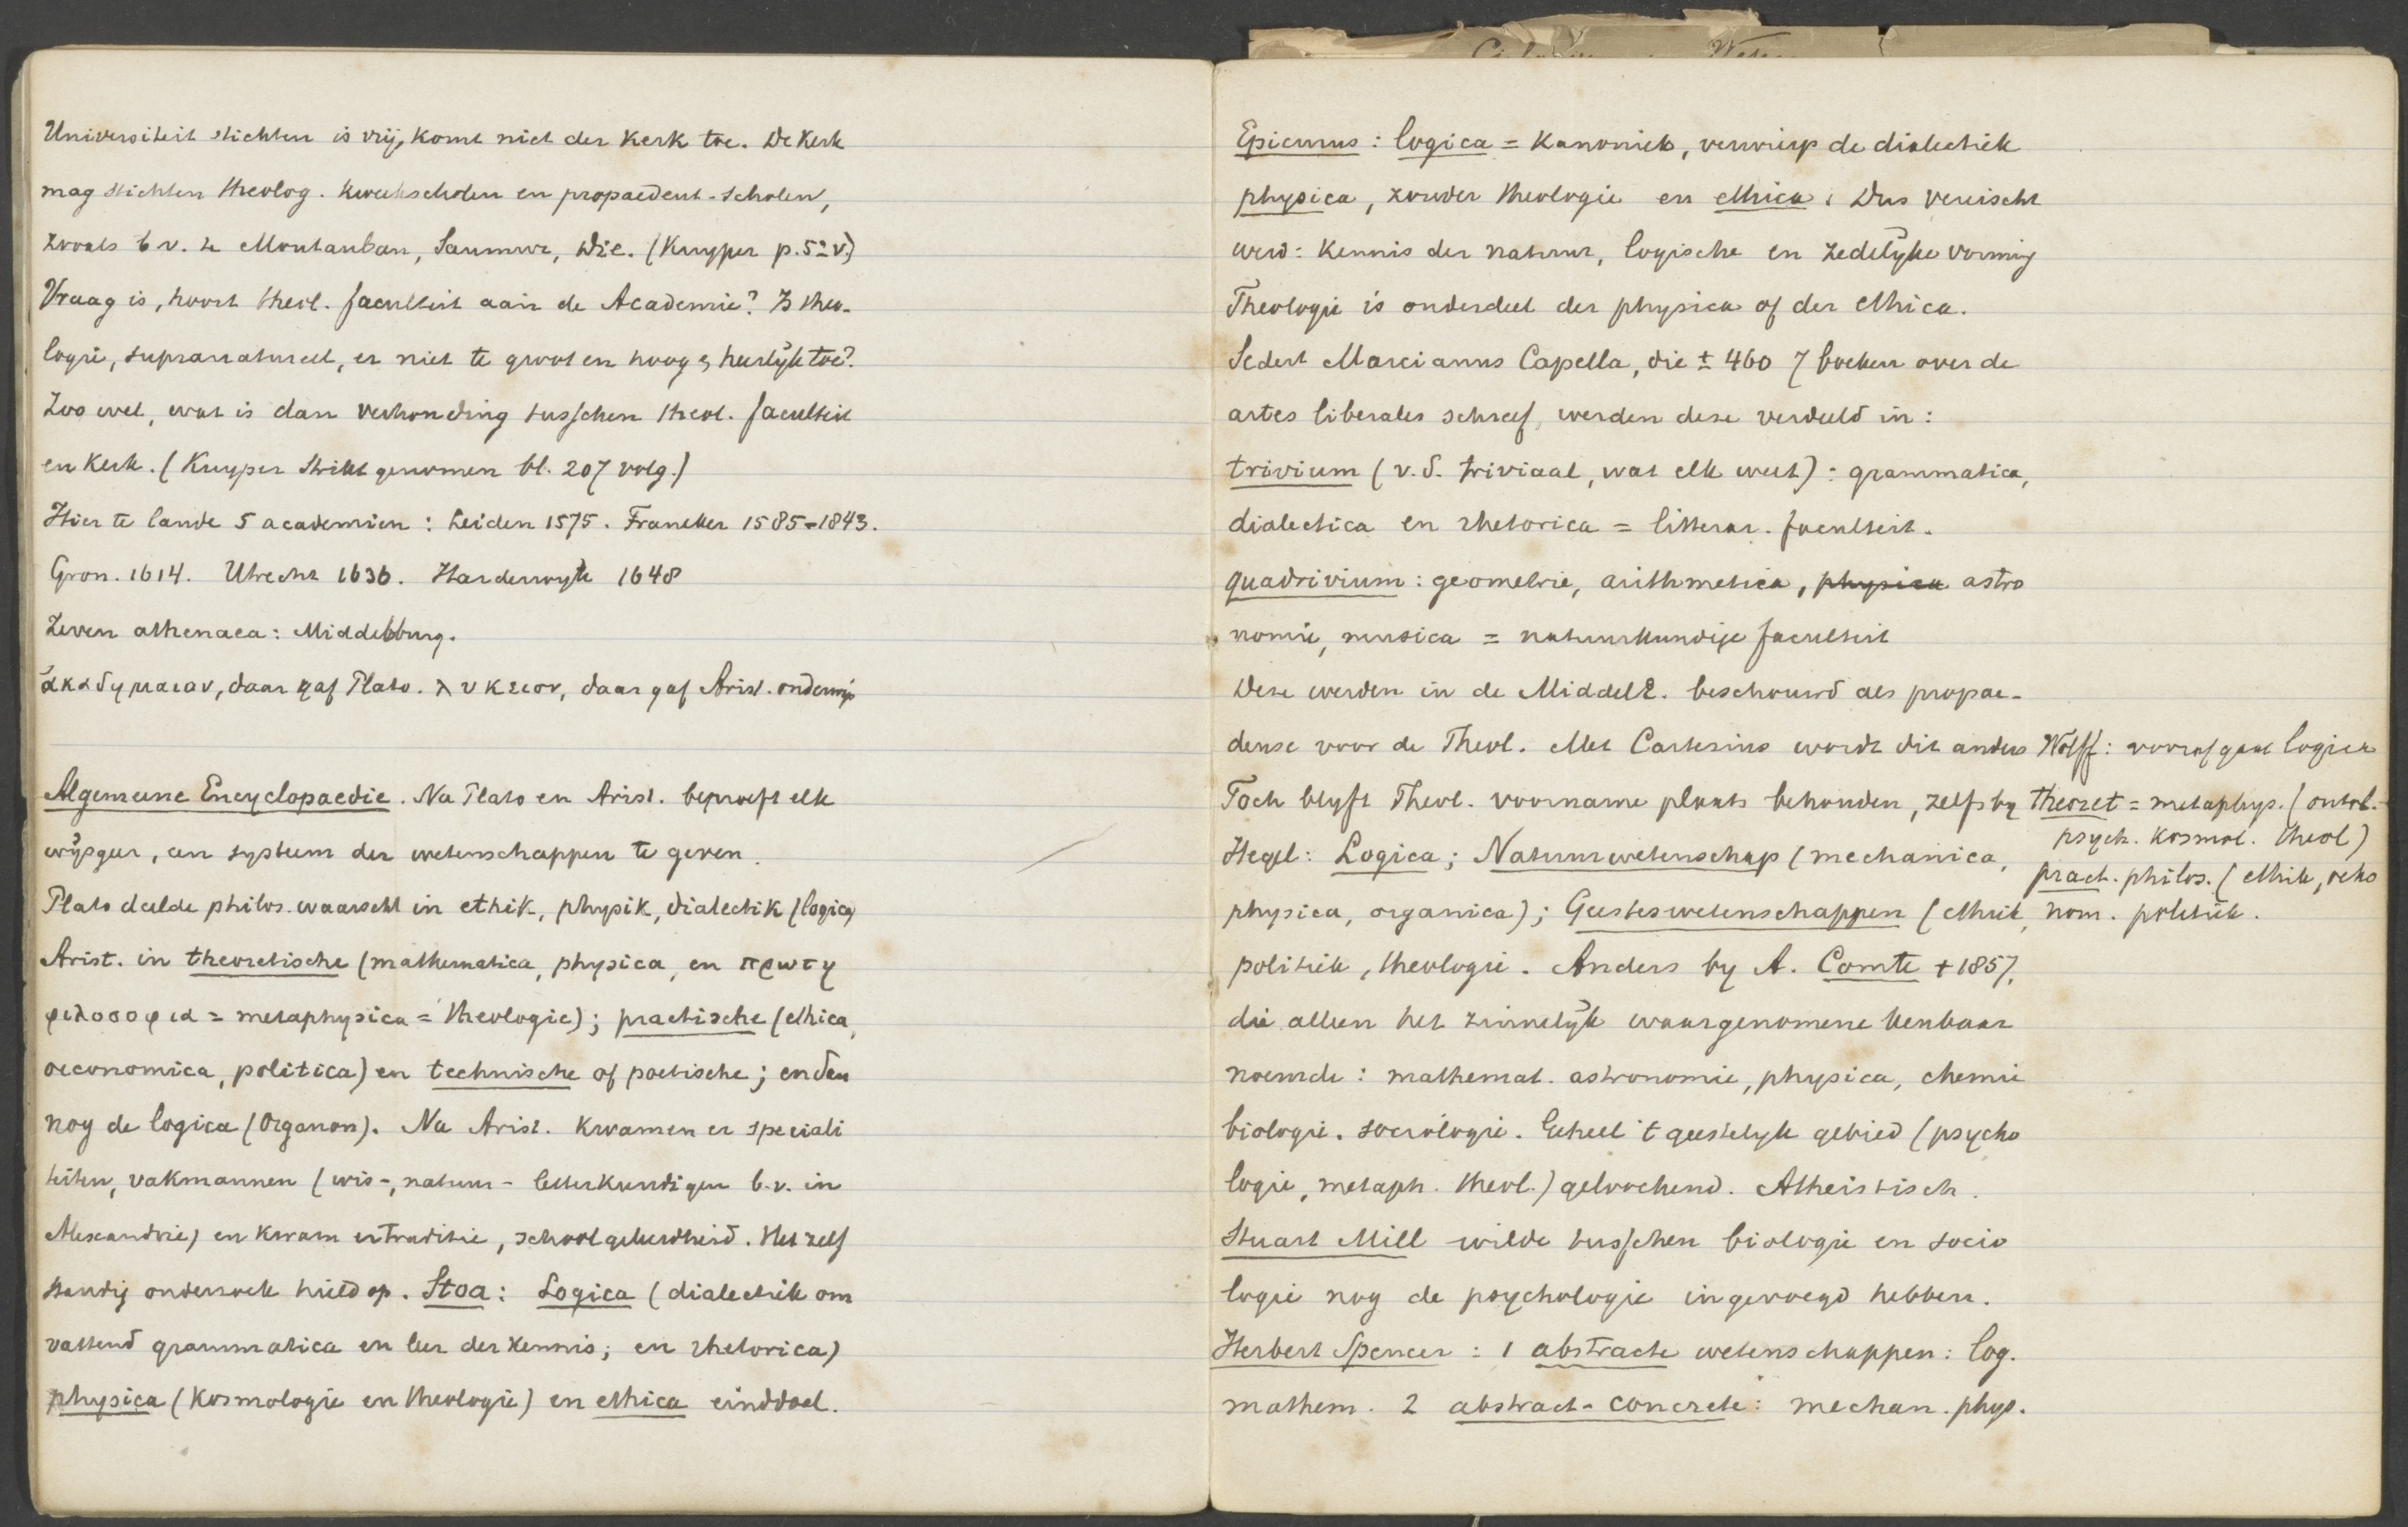 Universiteit stichten is vrij, komt niet der Kerk toe. De Kerk
mag stichten theolog. kweekscholen en propaedeut-scholen,
zooals b v. te Montauban, Saumur, Die. (Kuyper p. 5 v.)
Vraag is, hoort theol. faculteit aan de Academie? Is theo-
logie, supranatureel, er niet te groot en hoog & heerlijk toe?
Zoo wel, wat is dan verhouding tusschen theol. faculteit
en Kerk. (Kuyper Strikt genomen bl. 207 volg.)
Hier te lande 5 academien: Leiden 1575. Franeker 1585-1843.
Gron. 1614. Utrecht 1636. Harderwyk 1648
Zeven athenaea: Middelburg.
ἀκαδημαιαν, daar gaf Plato. λυκειον, daar gaf Arist. onderwijs
Algemeene Encyclopaedie. Na Plato en Arist. beproeft elk
wijsgeer, een systeem der wetenschappen te geven.
Plato deelde philos. waarschl in ethik, physik, dialectik (logica)
Arist. in theoretische (mathematica, physica, en πρωτη
φιλοσοφια = metaphysica = theologie); practische (ethica,
oeconomica, politica) en technische of poetische; en den
nog de logica (Organon). Na Arist. kwamen er speciali
teiten, vakmannen (wis-, natuur- letterkundigen b.v. in
Alexandrie) en kwam er traditie, schoolgeleerdheid. Het zelf
standig onderzoek hield op. Stoa: Logica (dialectik om
vattend grammatica en leer der kennis; en rhetorica)
physica (Kosmologie en theologie) en ethica einddoel.
Epicurus: logica = Kanoniek, verwierp de dialectiek
physica, zonder theologie en ethica. Dus vereischt
werd: Kennis der natuur, logische en zedelijke vorming
Theologie is onderdeel der physica of der ethica.
Sedert Marcianus Capella, die ± 460 7 boeken over de
artes liberales schreef, werden deze verdeeld in:
trivium (v. d. triviaal, wat elk weet): grammatica,
dialectica en rhetorica = litterar. faculteit.
quadrivium: geometrie, arithmetica, physica astro
nomie, musica = natuurkundige faculteit
Deze werden in de MiddelE. beschouwd als propae-
deuse voor de Theol. Met Cartesius wordt dit anders
Toch blyft Theol. voorname plaats behouden, zelfs by
Hegel: Logica; Natuurwetenschap (mechanica,
physica, organica); Geesteswetenschappen (ethiek,
politiek, theologie. Anders by A. Comte + 1857,
die alleen het zinnelijk waargenomene kenbaar
noemde: mathemat. astronomie, physica, chemie
biologie. sociologie. Geheel 't geestelyk gebied (psycho
logie, metaph. theol.) geloochend. Atheistisch.
Stuart Mill wilde tusschen biologie en socio
logie nog de psychologie ingevoegd hebben.
Herbert Spencer: 1 abstracte wetenschappen: log.
mathem. 2 abstract-concrete: mechan. phys.
Wolff: voorafgaat logica
theoret = metaphys. (ontol.
psych. kosmol. theol)
pract. philos. (ethik, oeko
nom. politiek.